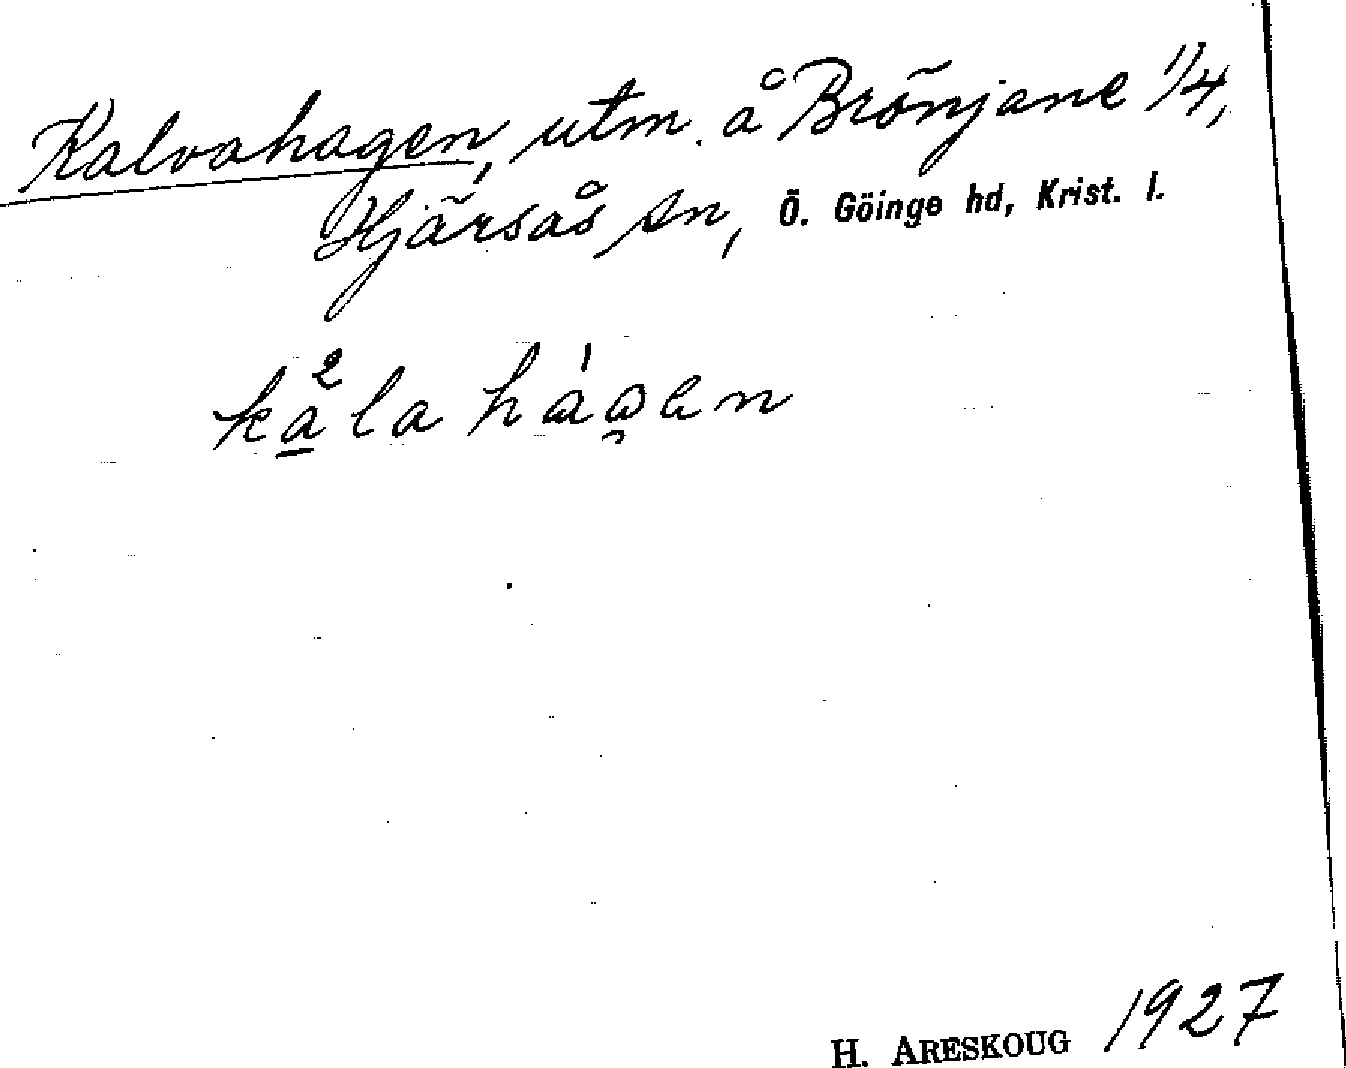 Kalvahagen, utm. å Brönjane 1/4,
Hjärsås sn, Ö. Göinge hd, Krist. l.
kala
H. ARESKOUG 1927